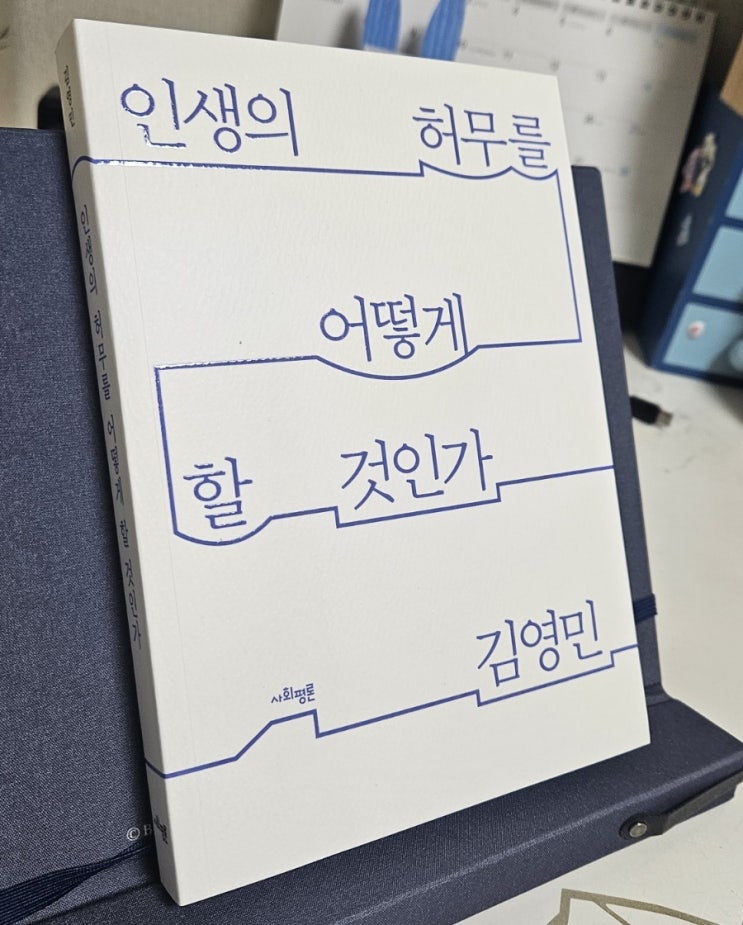 인생의 허무를
어떻게
할 것인가
김영민
사회평론
인생의 허무를 어떻게 할 것인가